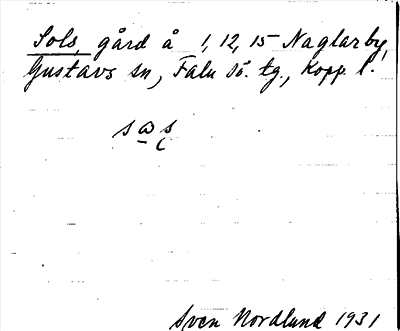 Sols, gård å 1, 12, 15 Naglarby,
Gustavs sn, Falu sö. tg., Kopp. l.
Sven Nordlund 1931